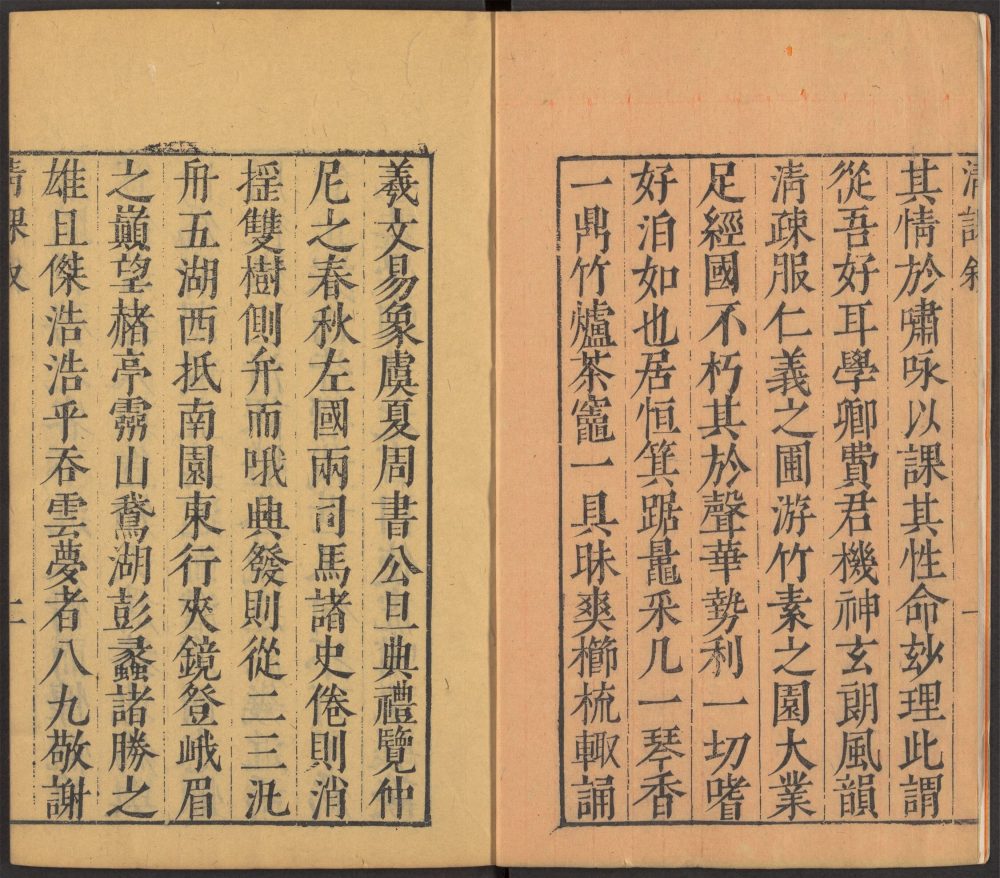 清課敘
一
其情於嘯咏以課其性命玅理此謂
從吾好耳學卿費君機神玄朗風韻
淸疎服仁義之圃游竹素之園大業
足經國不朽其於聲華勢利一切嗜
好泊如也居恒箕踞鼂采几一琴香
一鼎竹爐茶竈一具昧爽櫛梳輙誦
羲文易象虞夏周書公旦典禮覽仲
尼之春秋左國兩司馬諸史倦則消
揺雙樹側弁而哦興發則從二三汎
舟五湖西抵南園東行夾鏡登峨眉
之巓望赭亭霛山鵞湖彭蠡諸勝之
雄且傑浩浩乎吞雲夢者八九敬謝
清課敘
二